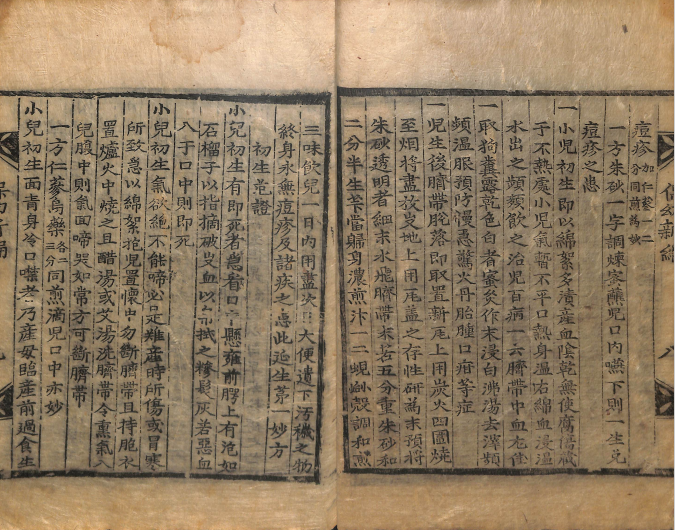 痘疹加仁蒙一二分同煎爲訣
一方朱砂一字調煉蜜蘸兒口內嚥下則一生免
痘疹之患
一小兒初生即以綿絮多漬產血陰乾無使腐傷藏
于不熱處小兒氣暫不平口熱身溫右綿血浸溫
水出之頻頻飲之治兒百病一云臍帶中血尤佳
一取狗糞靈乾色白者蜜炙作末浸白沸湯去滓頻
頻溫服預防慢急驚火丹胎腫口疳等症
一兒生後臍帶脫落即取置新瓦上用炭火四圍燒
至烟將盡放炭地上用瓦盖之存性研爲末預將
朱砂透明者細末水飛臍帶末若五分重朱砂和
二分半生芐當歸身濃煎汁一二蜆蛤殼調和煎
三味飲兒一日內用盡次日大便遺下汚穢之物
終身永無痘疹及諸疾之患此延生第一妙方
初生危證
小兒初生有即死者急看口中懸雍前腭上有泡如
石榴子以指摘破出血以帛拭之糝髮灰若惡血
入于口中則即死
小兒初生氣欲絕不能啼必是難產時所傷或冒寒
所致急以綿絮抱兒置懷中勿斷臍帶且待胞衣
置爐火中燒之且醋湯或艾湯洗臍帶令熏氣入
兒腹中則氣回啼哭如常方可斷臍帶
一方仁蒙烏藥各二三分同煎滴兒口中亦妙
小兒初生面靑身冷口噤者乃產母臨產前過食生